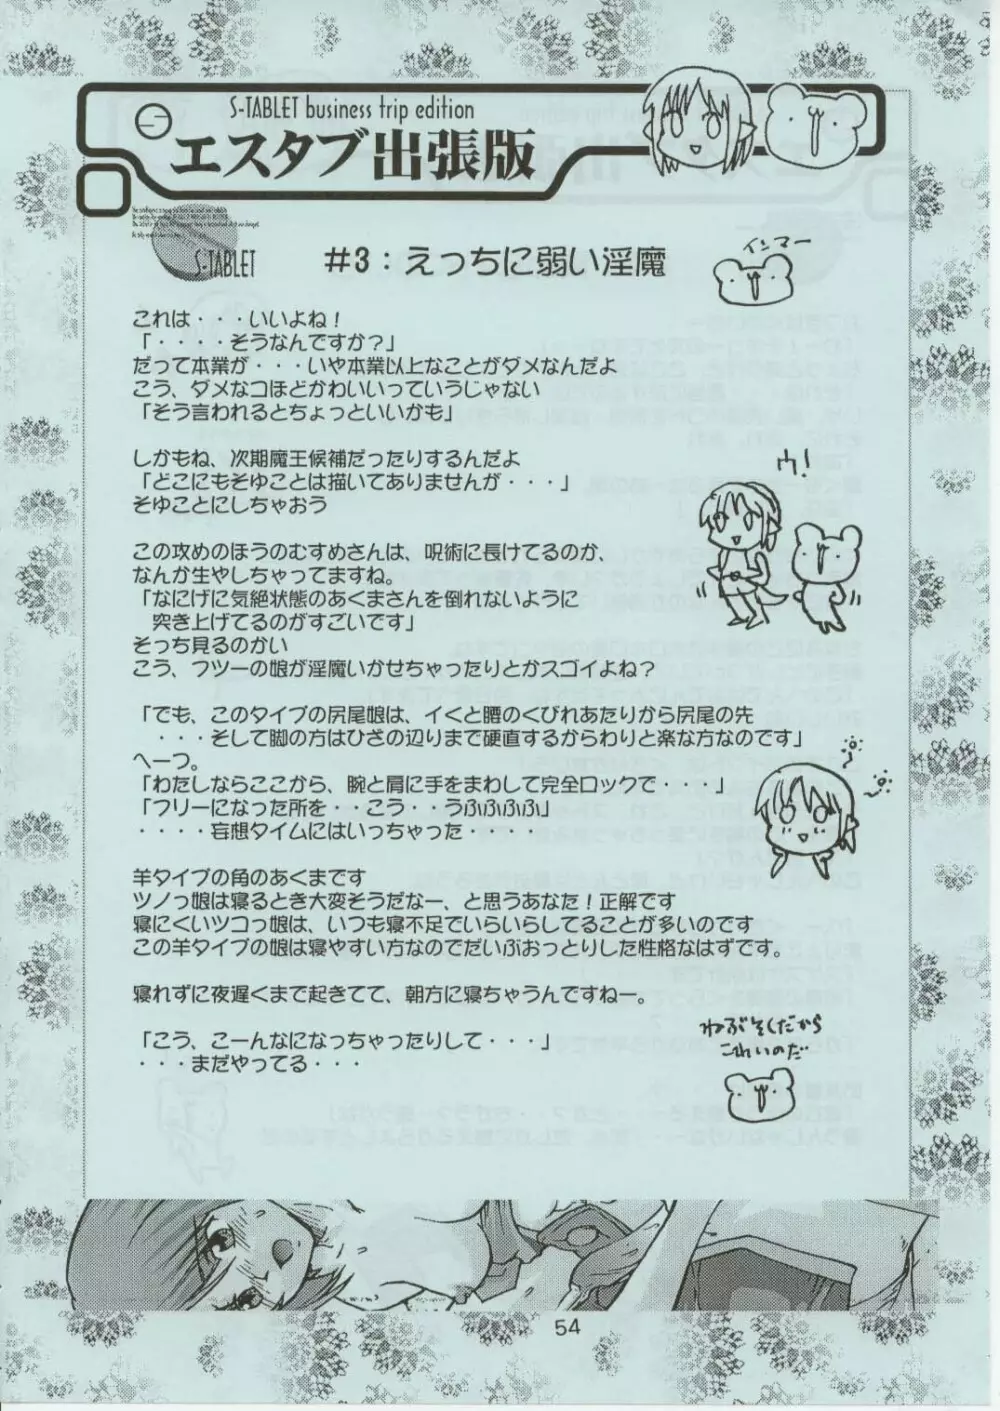 S-TABLET business trip edition
エスタブ出張版
S-TABLET
#3：えっちに弱い淫魔
インマー
これは・・・いいよね！
「・・・・そうなんですか？」
だって本業が・・・いや本業以上なことがダメなんだよ
こう、ダメなコほどかわいいっていうじゃない
「そう言われるとちょっといいかも」
しかもね、次期魔王候補だったりするんだよ
「どこにもそゆことは描いてありませんが・・・」
そゆことにしちゃおう
ウ！
この攻めのほうのむすめさんは、呪術に長けてるのか、
なんか生やしちゃってますね。
「なにげに気絶状態のあくまさんを倒れないように
突き上げてるのがすごいです」
そっち見るのかい
こう、フツーの娘が淫魔いかせちゃったりとかスゴイよね？
「でも、このタイプの尻尾娘は、イくと腰のくびれあたりから尻尾の先
・・・そして脚の方はひざの辺りまで硬直するからわりと楽な方なのです」
へーっ。
「わたしならここから、腕と肩に手をまわして完全ロックで・・・・」
「フリーになった所を・・こう・・うふふふふ」
・・・・妄想タイムにはいっちゃった・・・・
羊タイプの角のあくまです
ツノっ娘は寝るとき大変そうだなー、と思うあなた！正解です
寝にくいツコっ娘は、いつも寝不足でいらいらしてることが多いのです
この羊タイプの娘は寝やすい方なのでだいぶおっとりした性格なはずです。
寝れずに夜遅くまで起きてて、朝方に寝ちゃうんですねー。
「こう、こーんなになっちゃったりして・・・」
・・・まだやってる・・・
ねぶそくだから
これいのだ
54